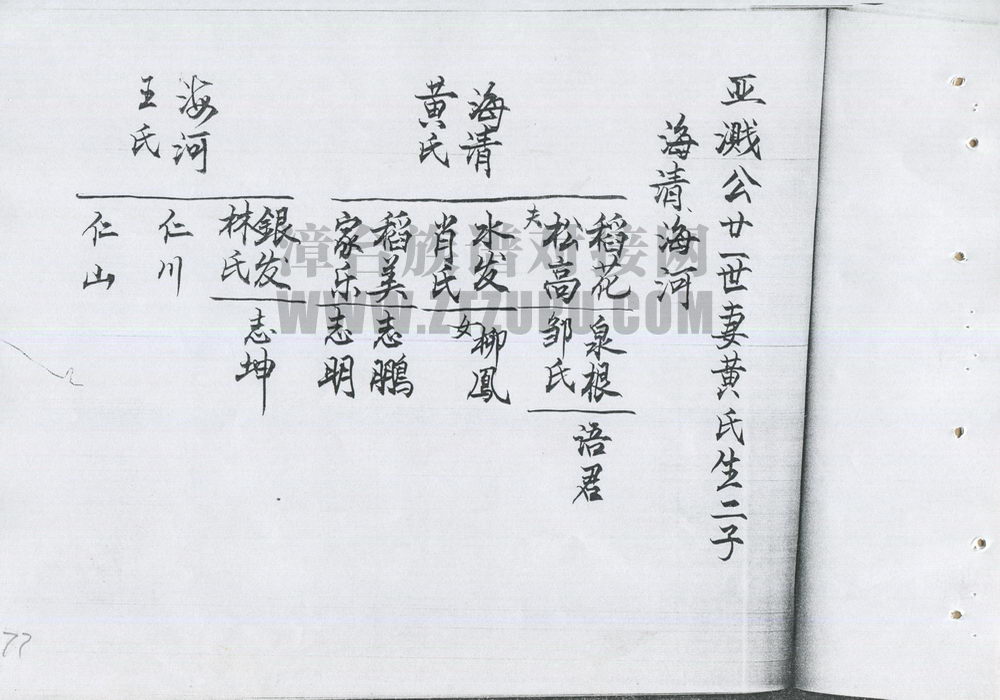 亚溅公廿一世妻黄氏生二子
海清 海河
海清
黄氏
稻花
夫松高
水发
肖氏
稻美
家乐
泉根
邹氏
语君
柳鳳
女
志鵬
志明
海河
王氏
銀发
林氏
仁川
仁山
志坤
漳台族谱对接网
WWW.ZTZUPU.COM
77